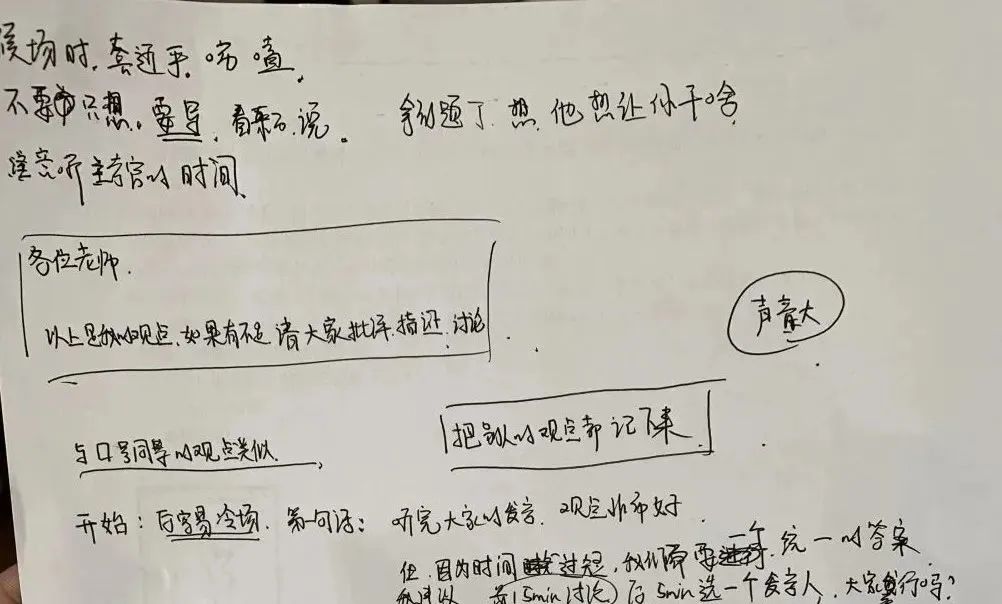 候场时,套近乎,唠嗑,
不要只想,要导,看来不说。 拿到题了,想,他想让你干啥,
注意听主考官的时间,
各位老师.
以上是我的观点,如果有不足请大家批评,指证,讨论
声音大
把别人的观点都记下来
与口号同学的观点类似,
开始:后容易冷场,第一句话:听完大家的发言,观点非常好,
但,因为时间过短,我们需要一个统一的答案
我建议 前15min讨论 后5min选一个发言人,大家行吗?